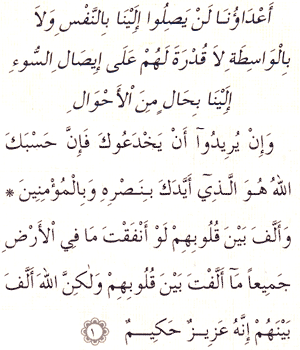 أَعْدَاؤُنَا لَنْ يَصِلُوا إِلَيْنَا بِالنَّفْسِ وَلاَ
بِالْوَاسِطَةِ لاَ قُدْرَةَ لَهُمْ عَلَى إِيصَالِ السُّوءِ
إِلَيْنَا بِحَالٍ مِنَ الْأَحْوَالِ
وَإِنْ يُرِيدُوآ أَنْ يَخْدَعُوكَ فَإِنَّ حَسْبَكَ
اللهُ هُوَ الَّذِيٓ أَيَّدَكَ بِنَصْرِهِ وَبِالْمُؤْمِنِينَ *
وَأَلَّفَ بَيْنَ قُلُوبِهِمْ لَوْ أَنْفَقْتَ مَا فِي الْأَرْضِ
جَمِيعاً مَآ أَلَّفْتَ بَيْنَ قُلُوبِهِمْ وَلٰكِنَّ اللهَ أَلَّفَ
بَيْنَهُمْ إِنَّهُ عَزِيزٌ حَكِيمٌ ١